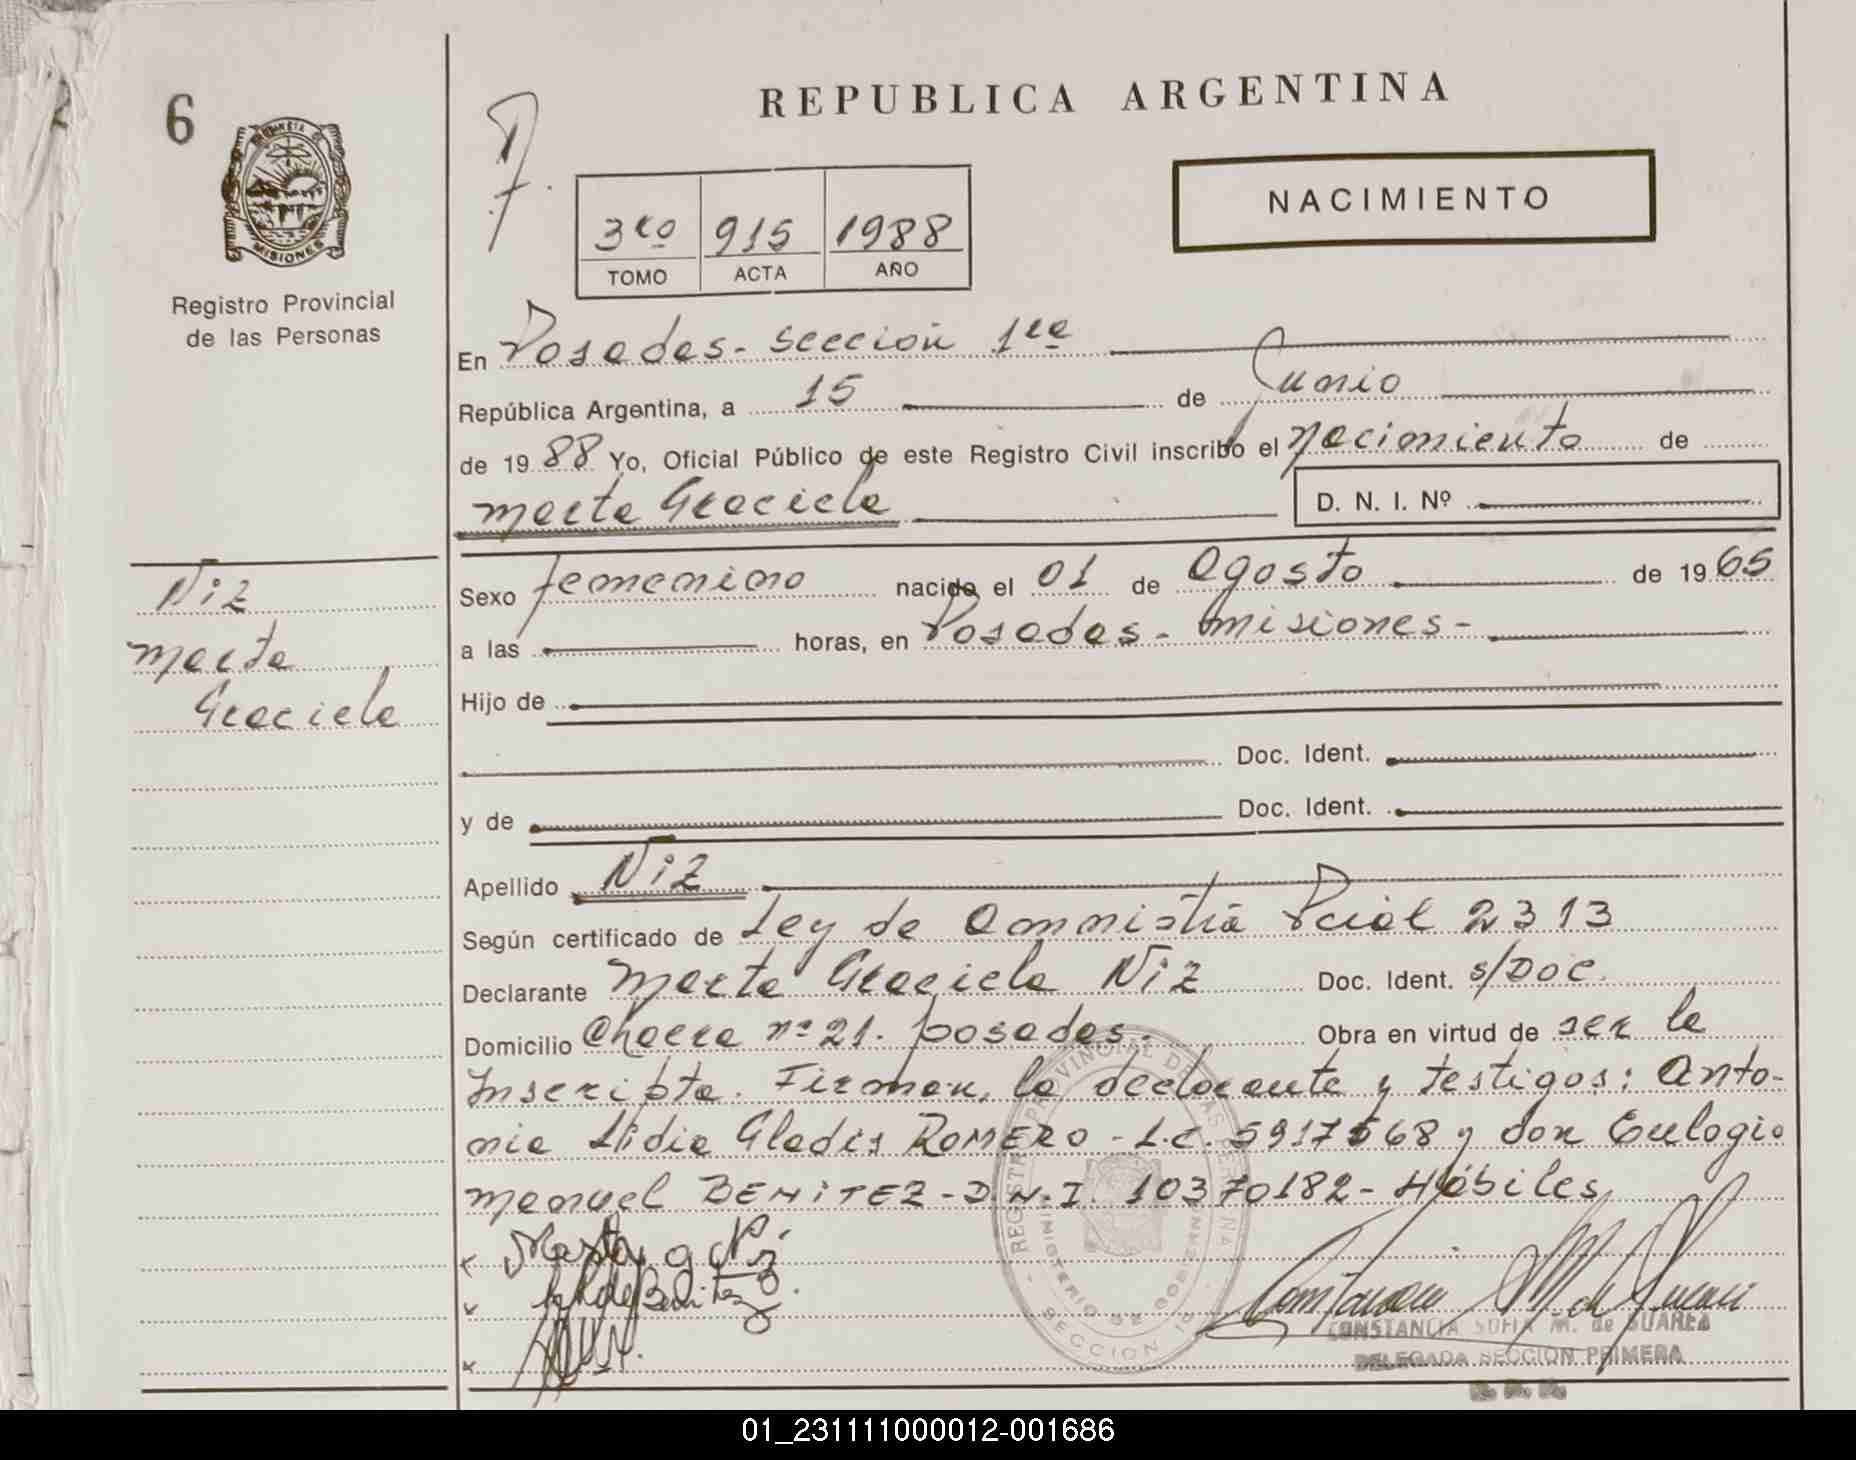 REPUBLICA ARGENTINA
6
PROVINCIA DE
MISIONES
Registro Provincial
de las Personas
NACIMIENTO
3ro 915 1988
TOMO ACTA AÑO
En Posadas - Sección 1ra
República Argentina, a 15 de Junio
de 1988 Yo, Oficial Público de este Registro Civil inscribo el nacimiento de
Marta Graciela D. N. I. Nº
Niz
Marta
Graciela
Sexo femenino nacida el 01 de Agosto de 1965
a las horas, en Posadas - Misiones -
Hijo de
Doc. Ident.
y de Doc. Ident.
Apellido Niz
Según certificado de Ley de Amnistía Pcial 2313
Declarante Marta Graciela Niz Doc. Ident. s/Doc.
Domicilio Chacra nº 21. posadas. Obra en virtud de ser la
Inscripta. Firman, la declarante y testigos: Anto-
nia Lidia Gladis ROMERO - L.C. 5917568 y don Eulogio
Manuel BENITEZ - D.N.I. 10370182 - Hábiles
Marta g Niz
CONSTANCIA SOFIA M. de SUAREZ
DELEGADA SECCION PRIMERA
01_231111000012-001686